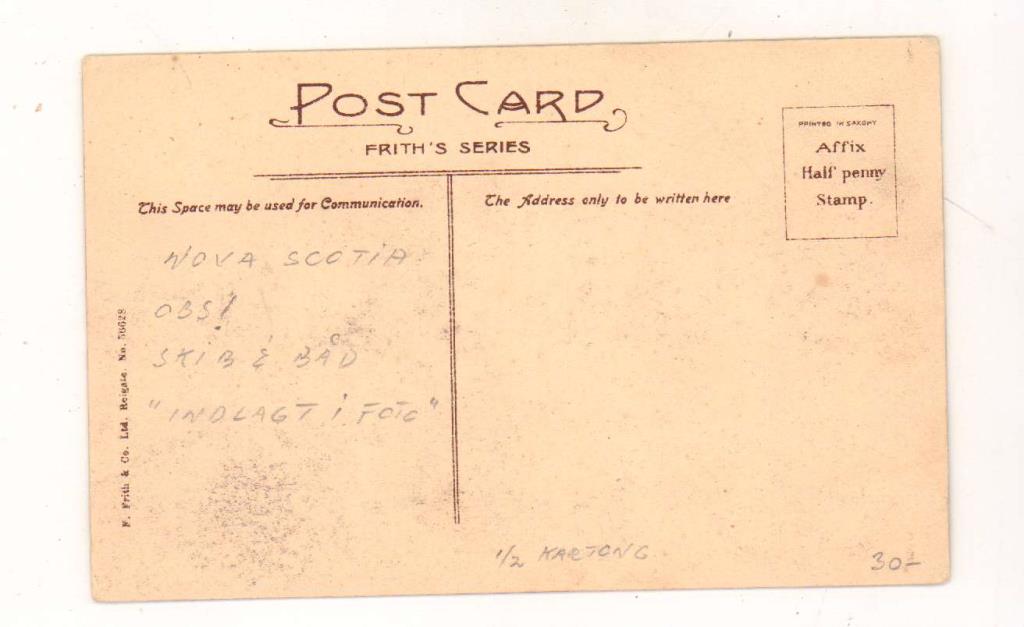 POST CARD
FRITH'S SERIES
PRINTED IN SAXONY
Affix
Half penny
Stamp.
This Space may be used for Communication.
The Address only to be written here
NOVA SCOTIA
OBS!
SKIB & BÅD
"INDLAGT i FOTO"
F. Frith & Co. Ltd. Reigate. No. 56628
1/2 KARTONG
30-